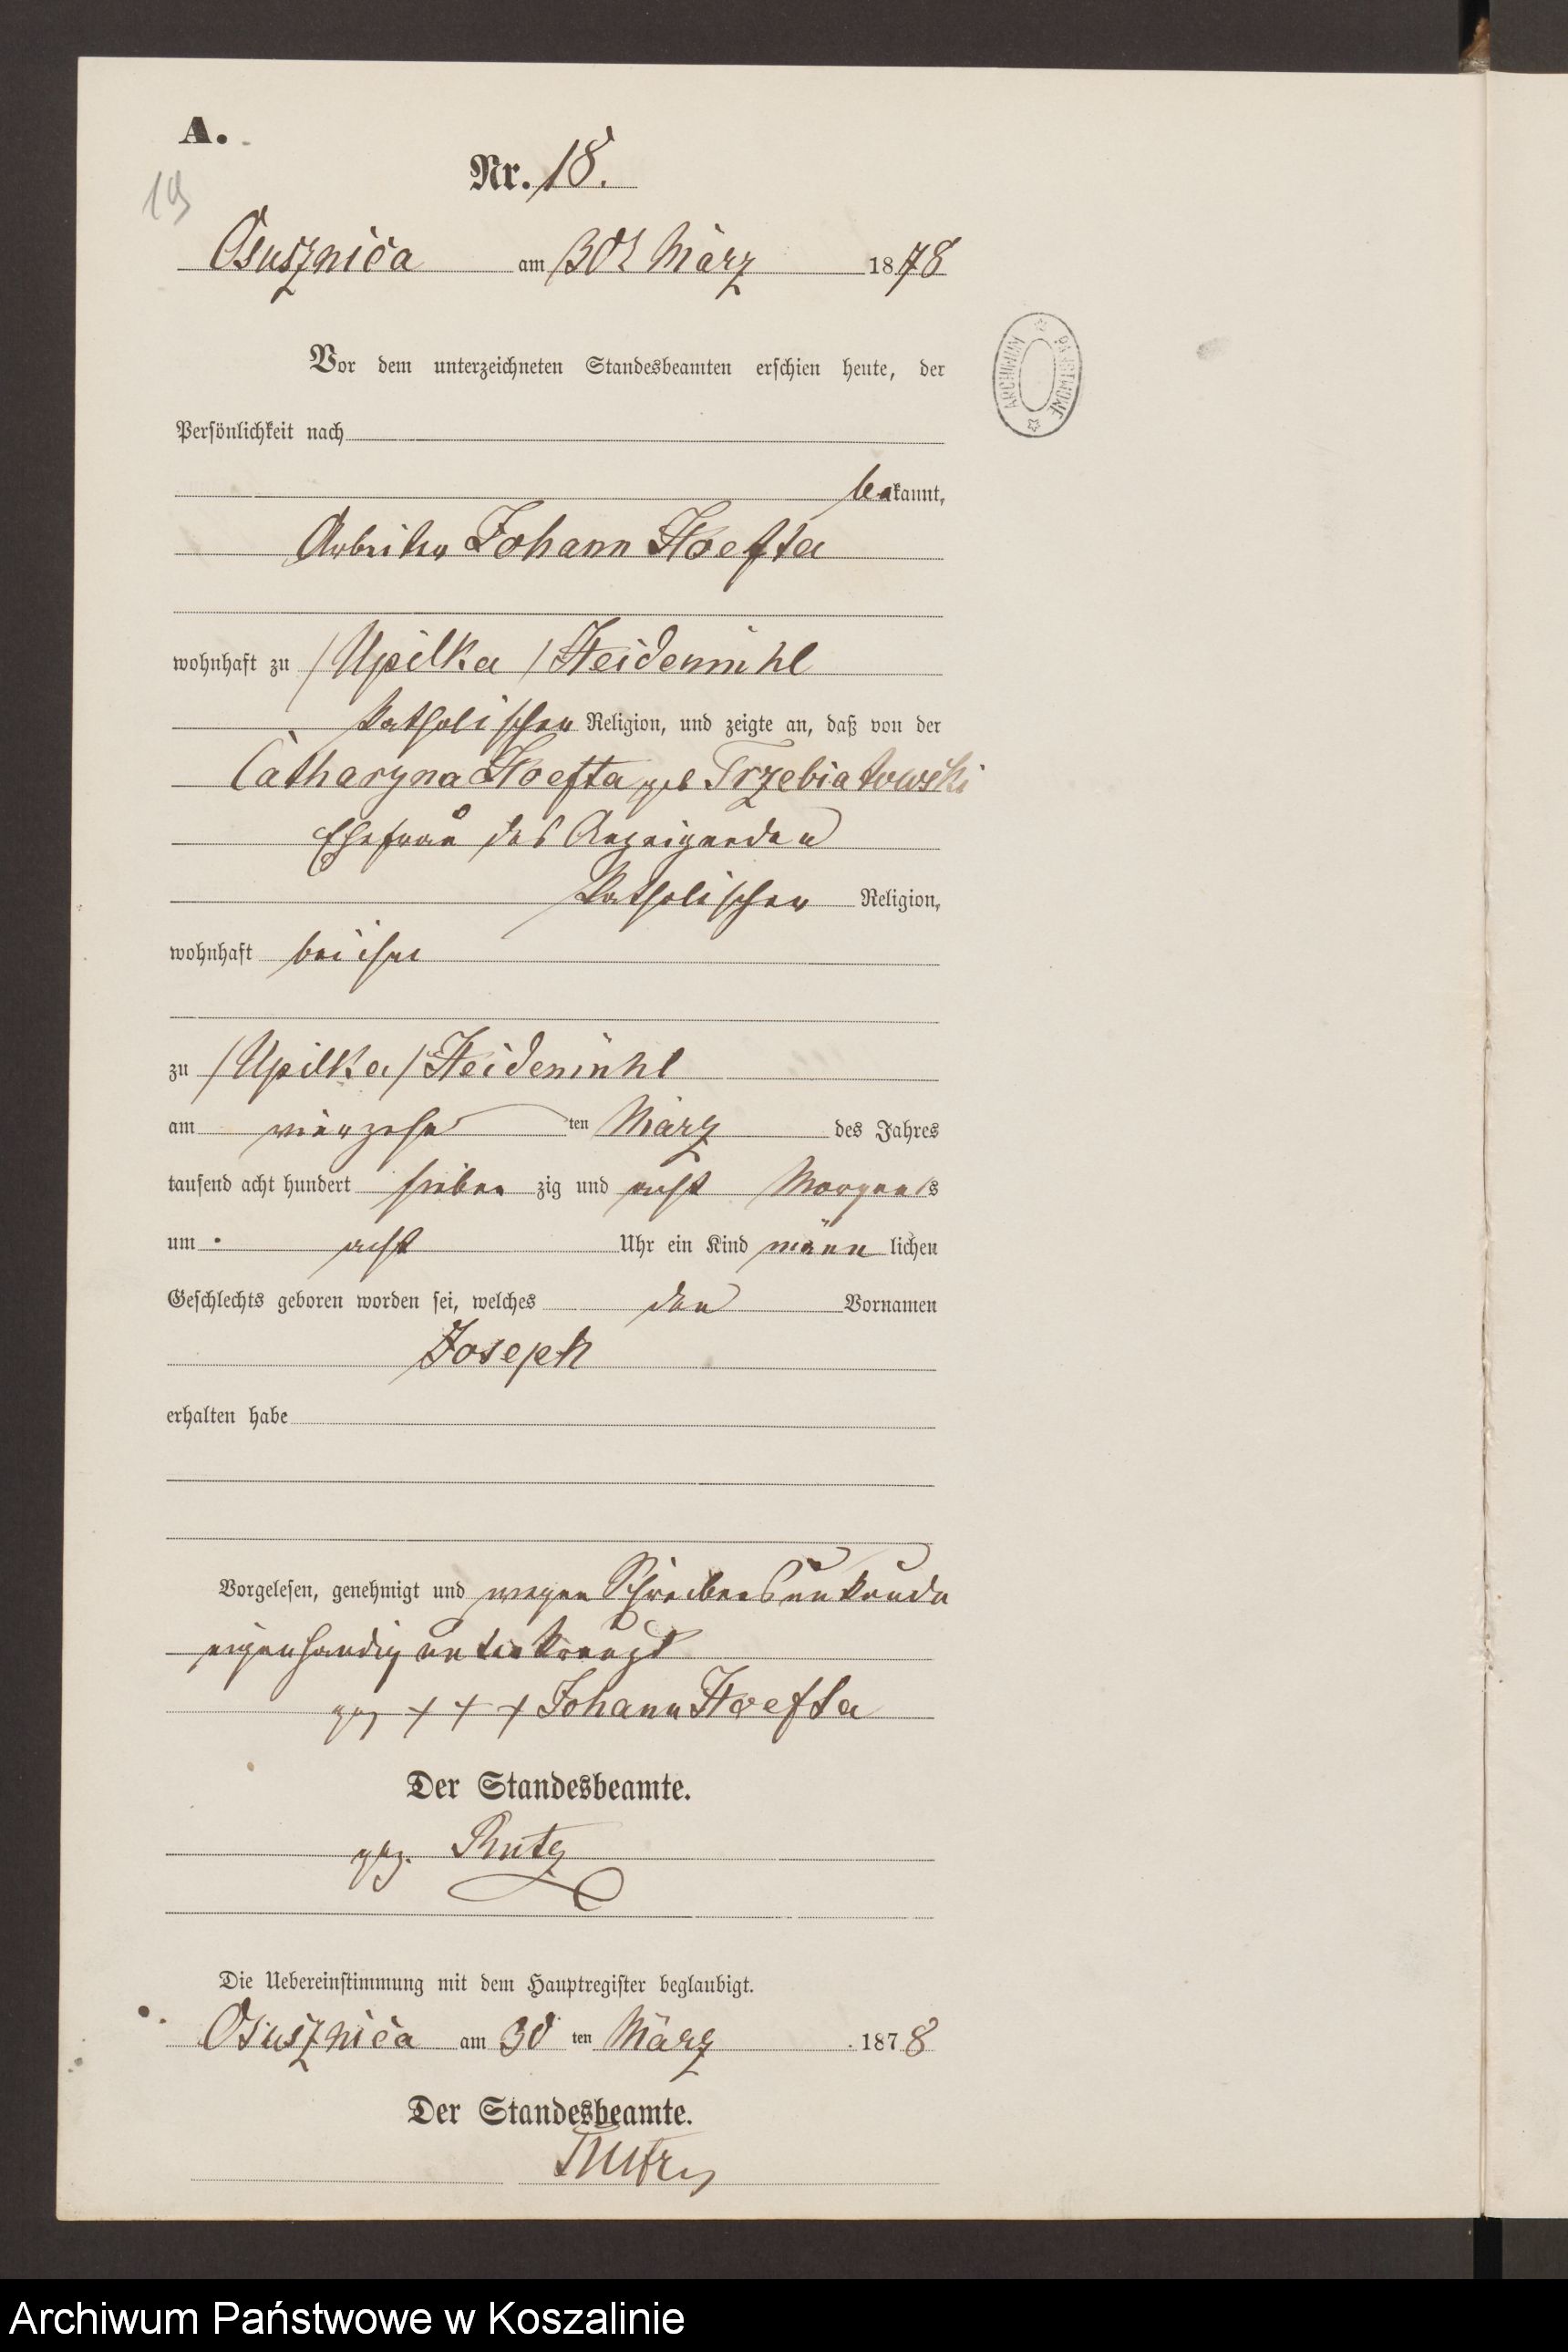 A.
Nr. 18.
19
Osusznica am 30t März 1878
ARCHIWUM PAŃSTWOWE
Vor dem unterzeichneten Standesbeamten erschien heute, der
Persönlichkeit nach
bekannt,
Arbeiter Johann Hoefta
wohnhaft zu /Upilka/ Heidemühl
katholischer Religion, und zeigte an, daß von der
Catharyna Hoefta geb Trzebiatowski
Ehefrau des Anzeigenden
katholischer Religion,
wohnhaft bei ihm
zu /Upilka/ Heidemühl
am vierzehn ten März des Jahres
tausend acht hundert sieben zig und acht Morgens
um acht Uhr ein Kind männ lichen
Geschlechts geboren worden sei, welches den Vornamen
Joseph
erhalten habe
Vorgelesen, genehmigt und wegen Schreibensunkunde
eigenhändig unterkreuzt
gez + + + Johann Hoefta
Der Standesbeamte.
gez. Rutz
Die Uebereinstimmung mit dem Hauptregister beglaubigt.
Osusznica am 30 ten März 1878
Der Standesbeamte.
Archiwum Państwowe w Koszalinie